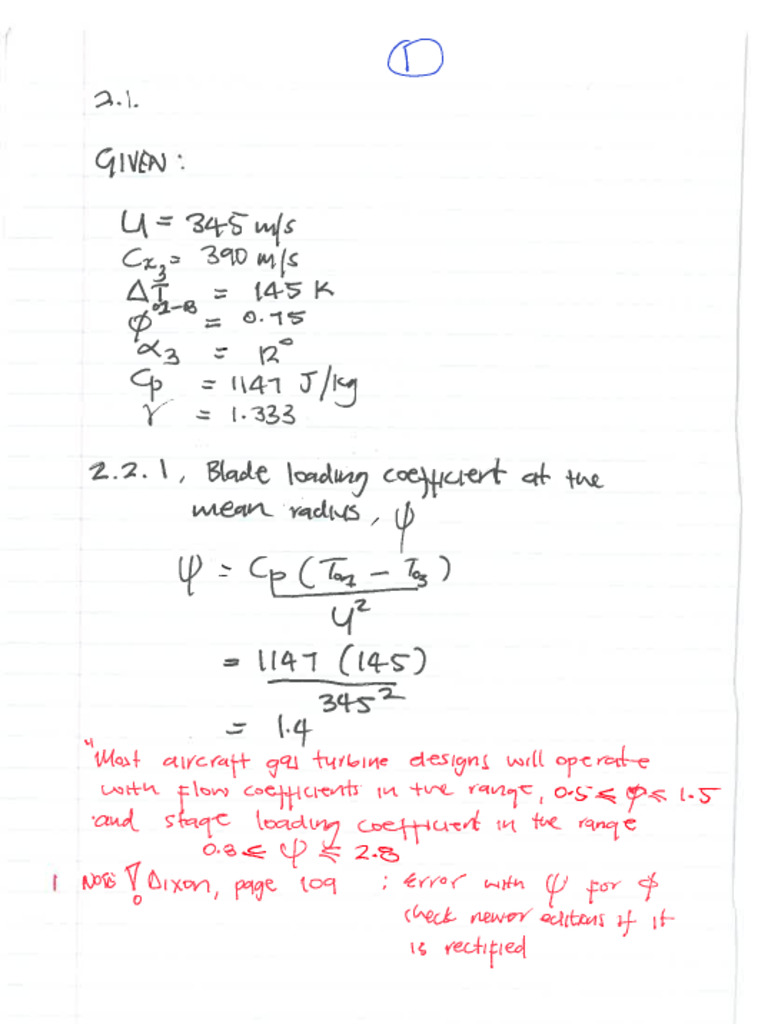 1
2.1.
GIVEN:
U = 345 m/s
Cx3 = 390 m/s
ΔT = 145 K
φ = 0.75
α3 = 12°
Cp = 1147 J/kg
γ = 1.333
2.2.1, Blade loading coefficient at the
mean radius, ψ
ψ = Cp (To2 - To3)
U²
= 1147 (145)
345²
= 1.4
"Most aircraft gas turbine designs will operate
with flow coefficients in the range, 0.5 ≤ φ ≤ 1.5
and stage loading coefficient in the range
0.8 ≤ ψ ≤ 2.8
1 NOTE ! Dixon, page 109 : Error with ψ for φ
check newer editions if it
is rectified